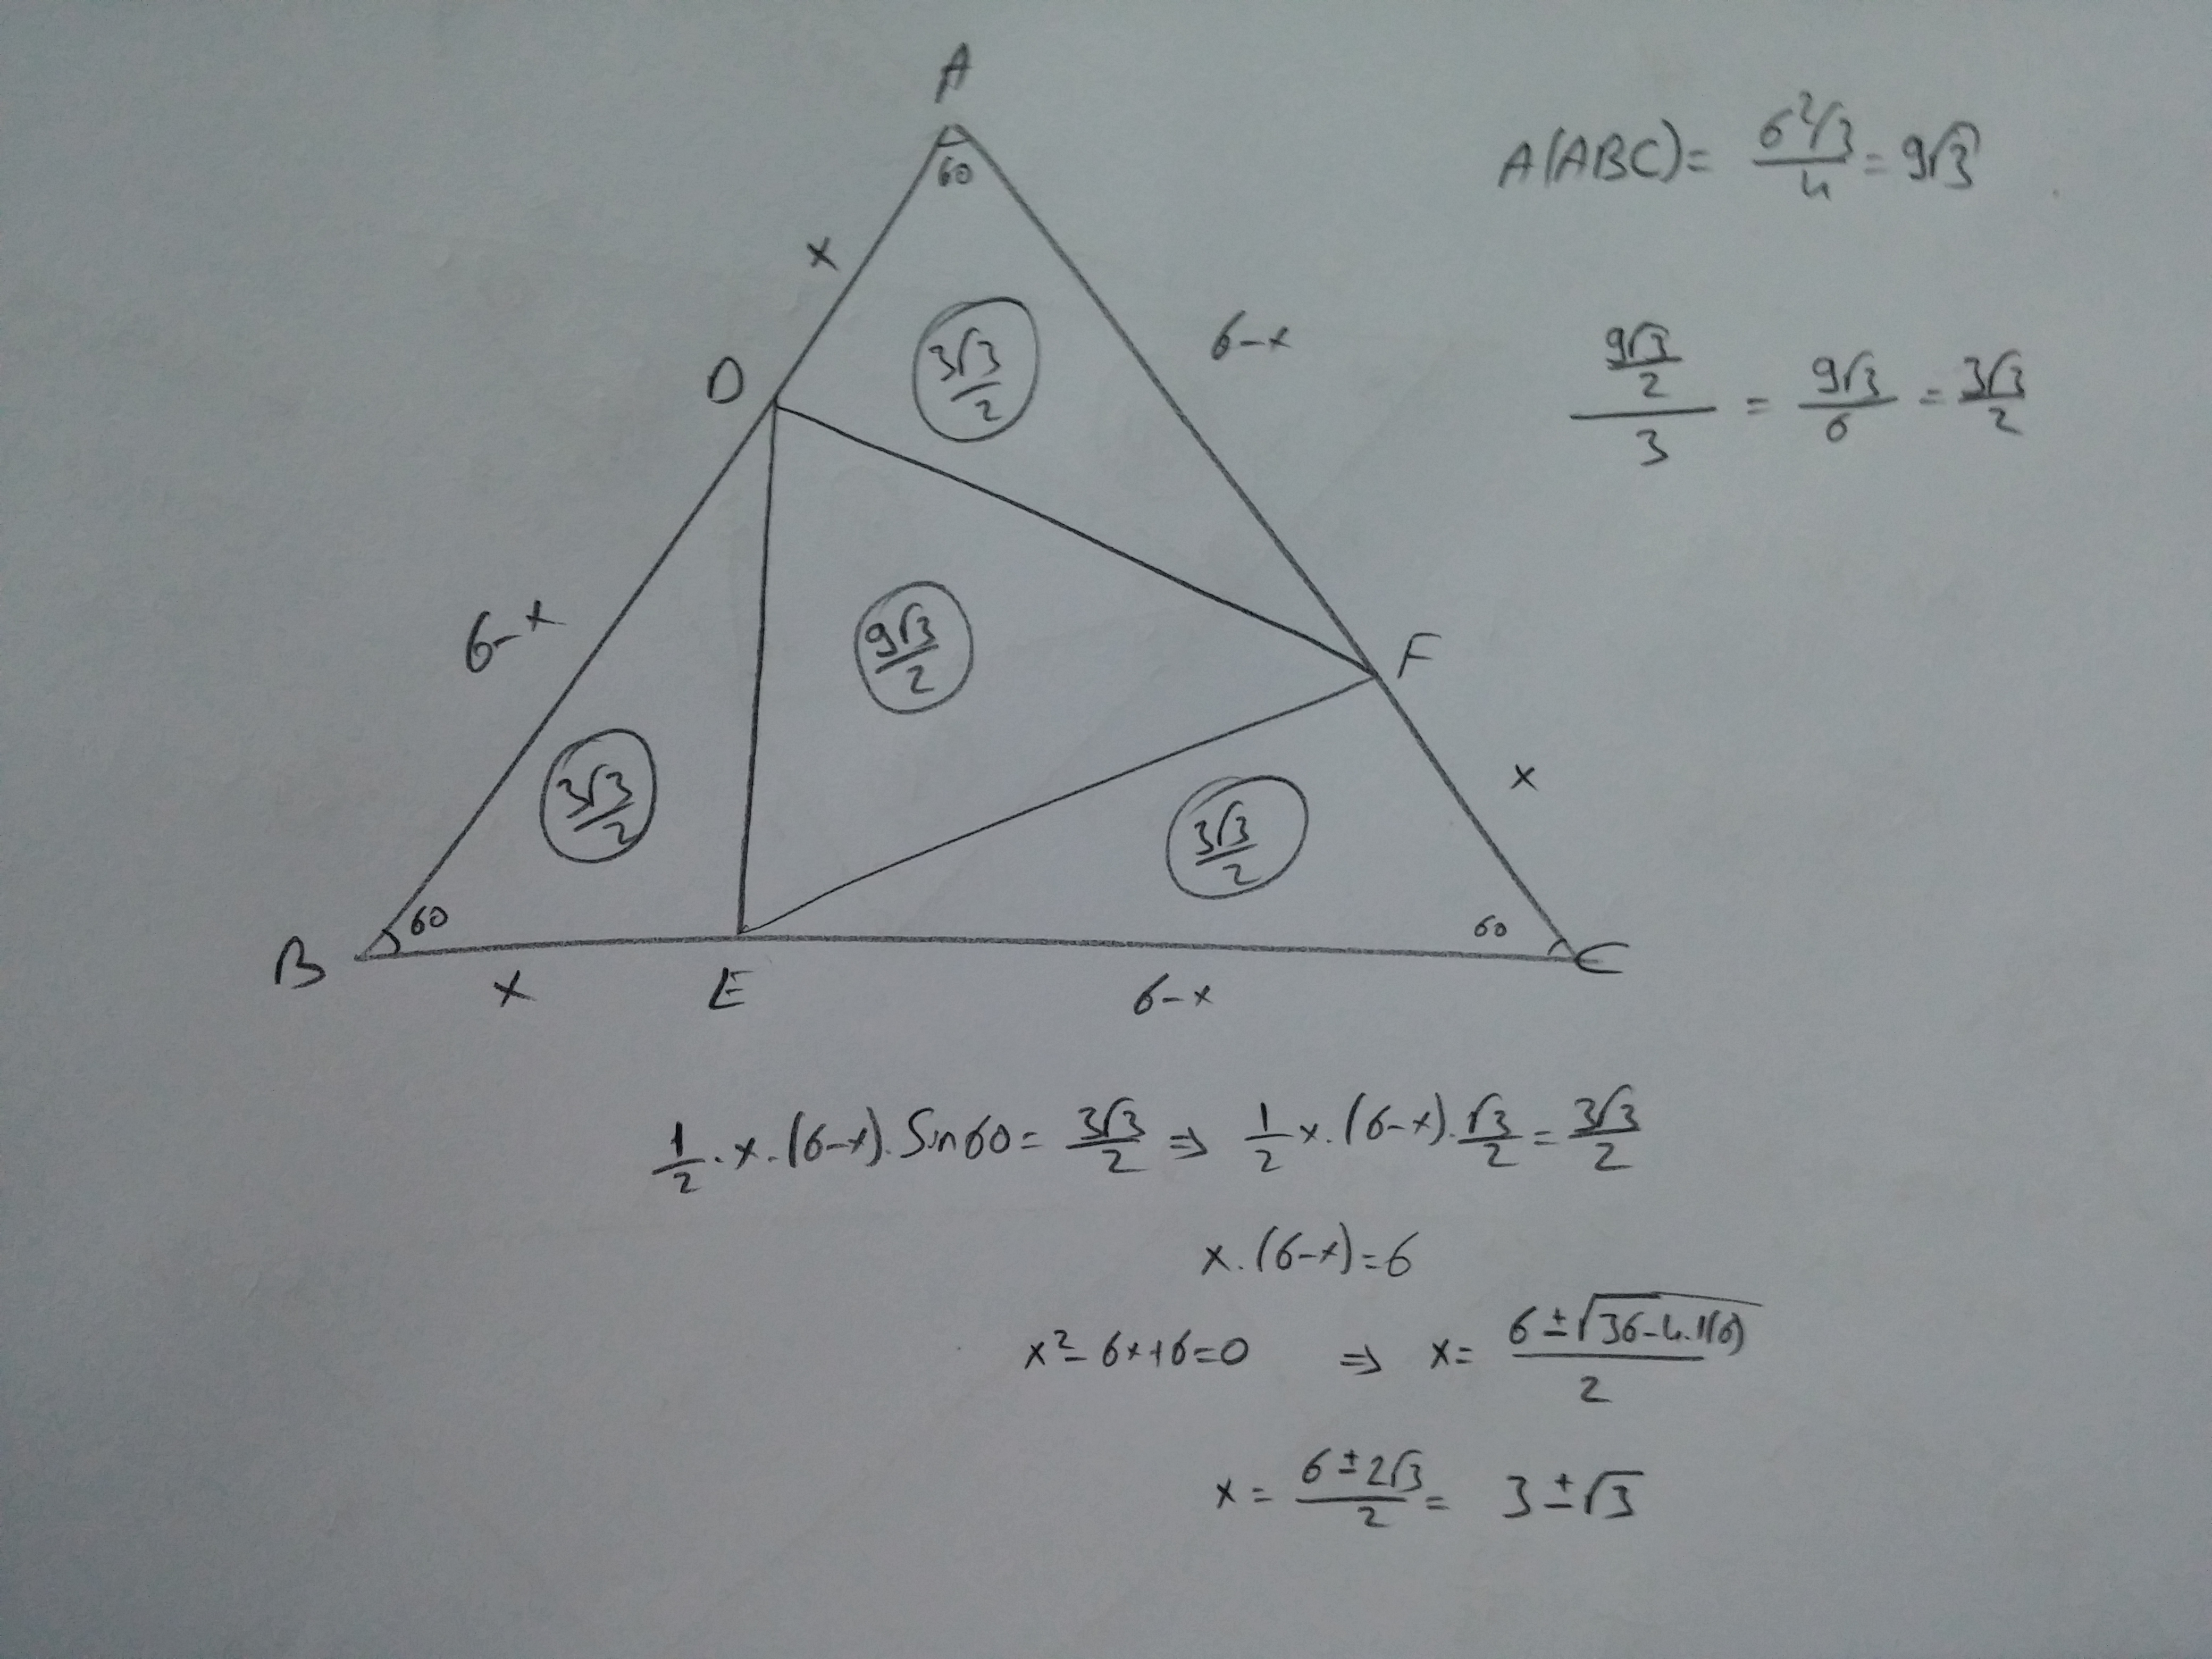 A
60
x
6-x
D
3√3/2
6-x
9√3/2
F
3√3/2
3√3/2
x
B
60
60
C
x
E
6-x
A(ABC)= 6²√3/4 = 9√3
(9√3/2)/3 = 9√3/6 = 3√3/2
1/2 . x . (6-x) . Sin60 = 3√3/2 ⇒ 1/2 x . (6-x) . √3/2 = 3√3/2
x . (6-x) = 6
x² - 6x + 6 = 0 ⇒ x = (6 ± √(36-4.1(6)))/2
x = (6 ± 2√3)/2 = 3 ± √3